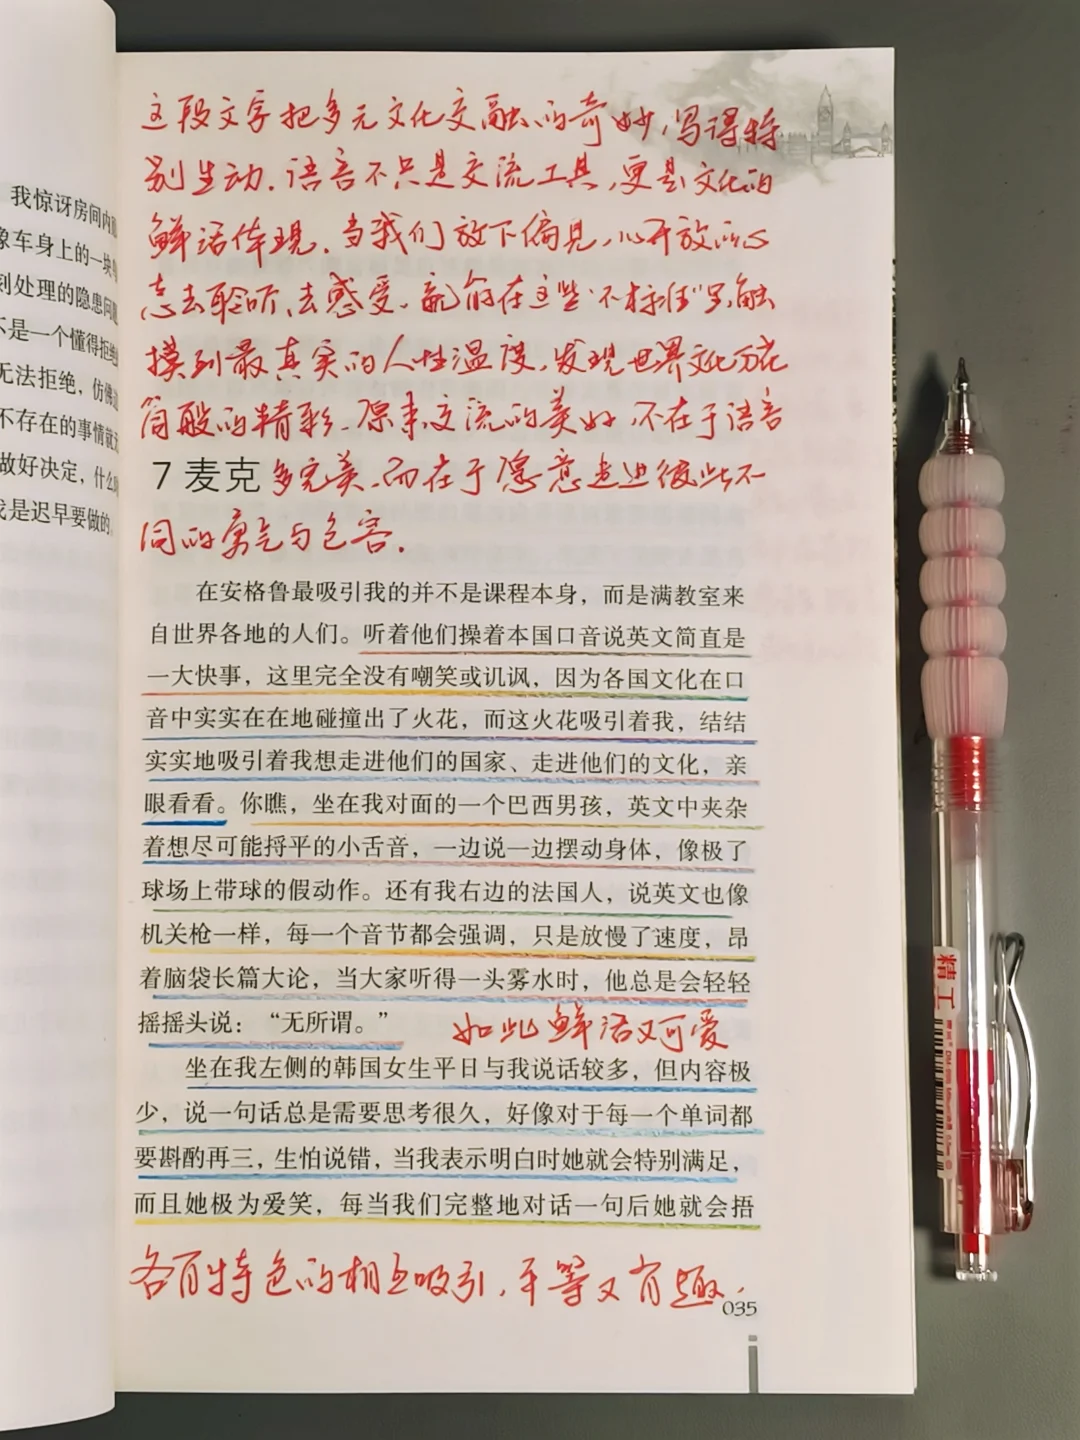 我惊讶房间内
像车身上的一块
刻处理的隐患问题
不是一个懂得拒绝
无法拒绝，仿佛
不存在的事情就
做好决定，什么
我是迟早要做的。
这段文字把多元文化交融的奇妙，写得特
别生动。语言不只是交流工具，更是文化的
鲜活体现。当我们放下偏见，以开放的心
态去聆听、去感受。就能在这些“不标准”里，触
摸到最真实的人性温度，发现世界文化万花
筒般的精彩。原来交流的美好，不在于语言
7 麦克
多完美，而在于愿意走进彼此不
同的勇气与包容。
在安格鲁最吸引我的并不是课程本身，而是满教室来
自世界各地的人们。听着他们操着本国口音说英文简直是
一大快事，这里完全没有嘲笑或讥讽，因为各国文化在口
音中实实在在地碰撞出了火花，而这火花吸引着我，结结
实实地吸引着我想走进他们的国家、走进他们的文化，亲
眼看看。你瞧，坐在我对面的一个巴西男孩，英文中夹杂
着想尽可能捋平的小舌音，一边说一边摆动身体，像极了
球场上带球的假动作。还有我右边的法国人，说英文也像
机关枪一样，每一个音节都会强调，只是放慢了速度，昂
着脑袋长篇大论，当大家听得一头雾水时，他总是会轻轻
摇摇头说：“无所谓。”
如此鲜活又可爱
坐在我左侧的韩国女生平日与我说话较多，但内容极
少，说一句话总是需要思考很久，好像对于每一个单词都
要斟酌再三，生怕说错，当我表示明白时她就会特别满足，
而且她极为爱笑，每当我们完整地对话一句后她就会捂
各有特色的相互吸引，平等又有趣。
035
精工